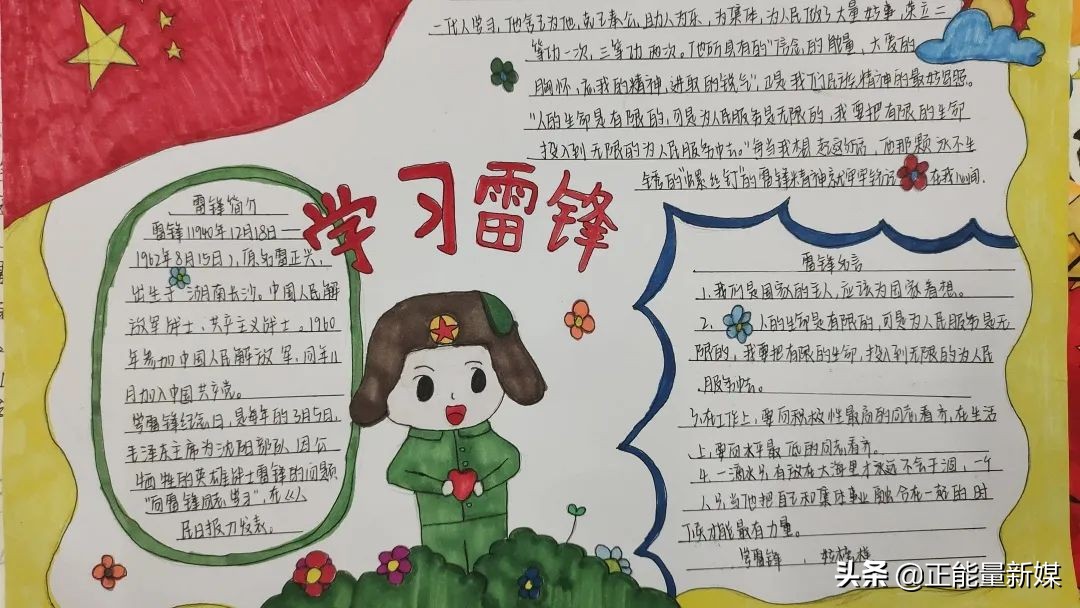 一代人学习,他舍己为他,克己奉公,助人为乐,为集体,为人民做了大量好事,荣立二
等功一次,三等功两次。他所具有的"信念的能量,大爱的
胸怀,忘我的精神,进取的锐气",正是我们民族精神的最好写照。
"人的生命是有限的,可是为人民服务是无限的,我要把有限的生命
投入到无限的为人民服务中去。"每当我想起这句话,而那颗永不生
锈的"螺丝钉"的雷锋精神就牢牢铭记在我心间.
学习雷锋
雷锋简介
雷锋(1940年12月18日一
1962年8月15日),原名雷正兴,
出生于湖南长沙。中国人民解
放军战士、共产主义战士。1960
年参加中国人民解放军,同年11
月加入中国共产党。
学雷锋纪念日,是每年的3月5日,
毛泽东主席为沈阳部队因公
牺牲的英雄战士雷锋的问题
"向雷锋同志学习",在《人
民日报刀发表。
雷锋名言
1.我们是国家的主人,应该为国家着想。
2.人的生命是有限的,可是为人民服务是无
限的,我要把有限的生命,投入到无限的为人民
服务中去。
3.在工作上,要向积极性最高的同志看齐,在生活
上,要向水平最低的同志看齐。
4.一滴水只有放在大海里才永远不会干涸,一个
人只当他把自己和集体事业融合在一起的时
候才能最有力量。
学雷锋、
头条 @正能量新媒